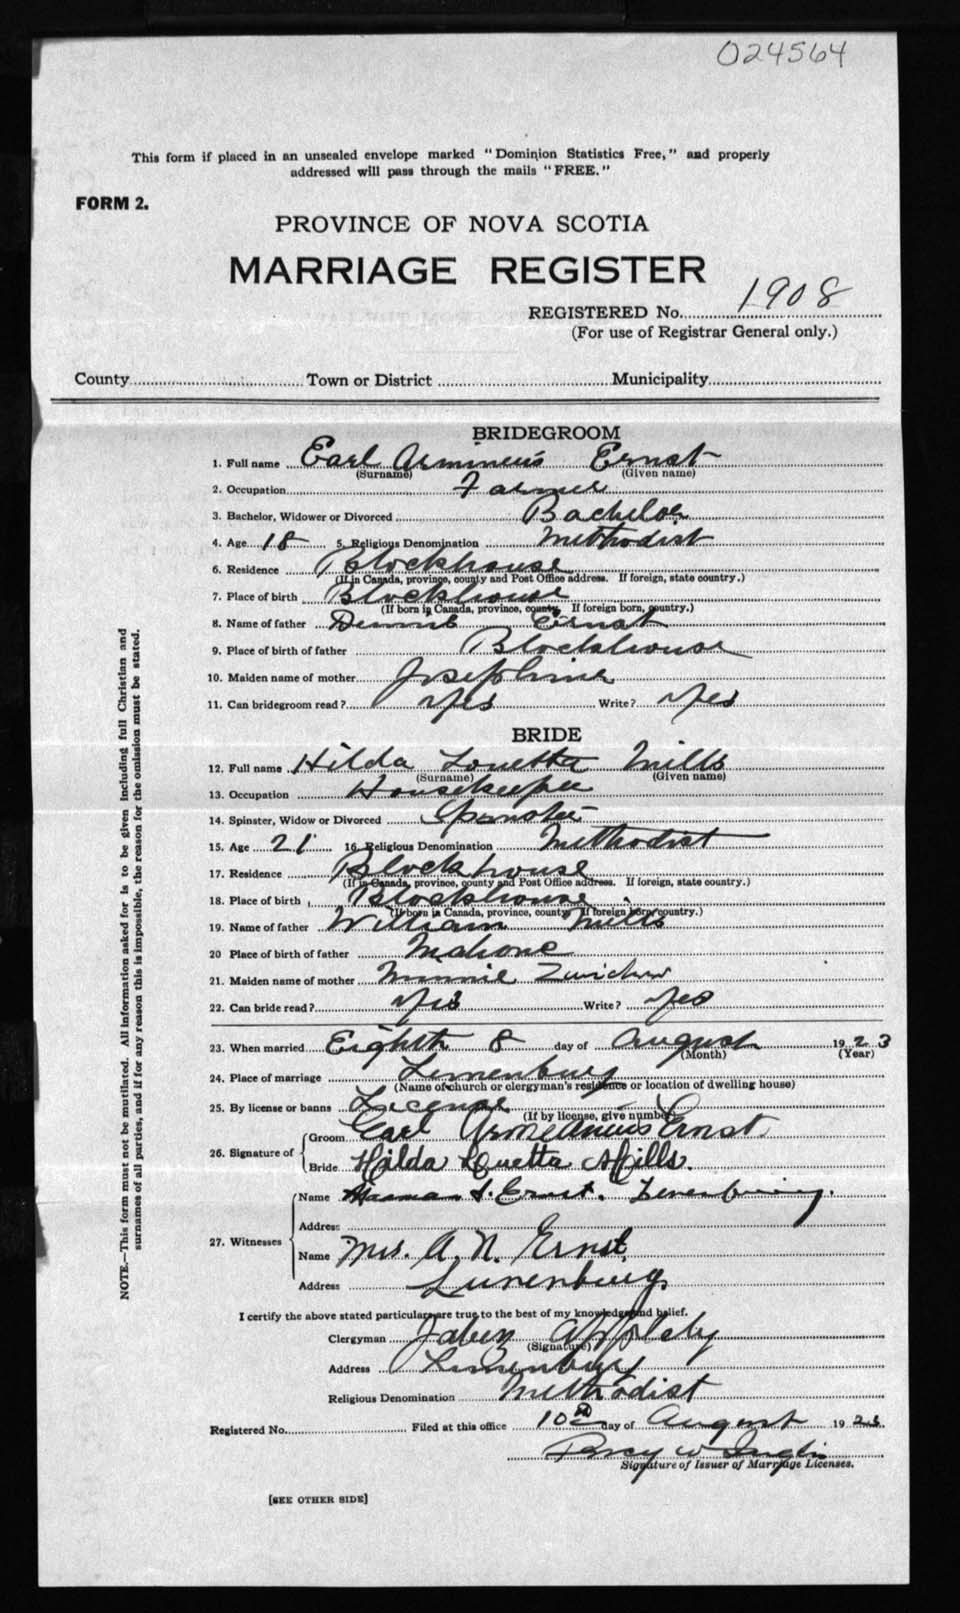 024564
This form if placed in an unsealed envelope marked "Dominion Statistics Free," and properly
addressed will pass through the mails "FREE."
FORM 2.
PROVINCE OF NOVA SCOTIA
MARRIAGE REGISTER
REGISTERED No. 1908
(For use of Registrar General only.)
County Town or District Municipality
BRIDEGROOM
1. Full name Earl Armineus Ernst
(Surname) (Given name)
2. Occupation Farmer
3. Bachelor, Widower or Divorced Bachelor
4. Age 18 5. Religious Denomination Methodist
6. Residence Blockhouse
(If in Canada, province, county and Post Office address. If foreign, state country.)
7. Place of birth Blockhouse
(If born in Canada, province, county. If foreign born, country.)
8. Name of father Dennis Ernst
9. Place of birth of father Blockhouse
10. Maiden name of mother Josephine
11. Can bridegroom read? Yes Write? Yes
BRIDE
12. Full name Hilda Louetta Mills
(Surname) (Given name)
13. Occupation Housekeeper
14. Spinster, Widow or Divorced Spinster
15. Age 21 16. Religious Denomination Methodist
17. Residence Blockhouse
(If in Canada, province, county and Post Office address. If foreign, state country.)
18. Place of birth Blockhouse
(If born in Canada, province, county. If foreign born, country.)
19. Name of father William Mills
20 Place of birth of father Mahone
21. Maiden name of mother Minnie Zwicker
22. Can bride read? Yes Write? Yes
23. When married Eighth 8 day of August 1923
(Month) (Year)
24. Place of marriage Lunenburg
(Name of church or clergyman's residence or location of dwelling house)
25. By license or banns License
(If by license, give number)
26. Signature of Groom Earl Ernst
Bride Hilda Louetta Mills.
27. Witnesses Name Ernst. Lunenburg.
Address
Name Mrs. A. N. Ernst
Address Lunenburg
I certify the above stated particulars are true to the best of my knowledge and belief.
Clergyman Jabez Appleby
(Signature)
Address Lunenburg
Religious Denomination Methodist
Registered No. Filed at this office 10th day of August 1923
Percy W Inglis
Signature of Issuer of Marriage Licenses.
[SEE OTHER SIDE]
NOTE.—This form must not be mutilated. All information asked for is to be given including full Christian and
surnames of all parties, and if for any reason this is impossible, the reason for the omission must be stated.